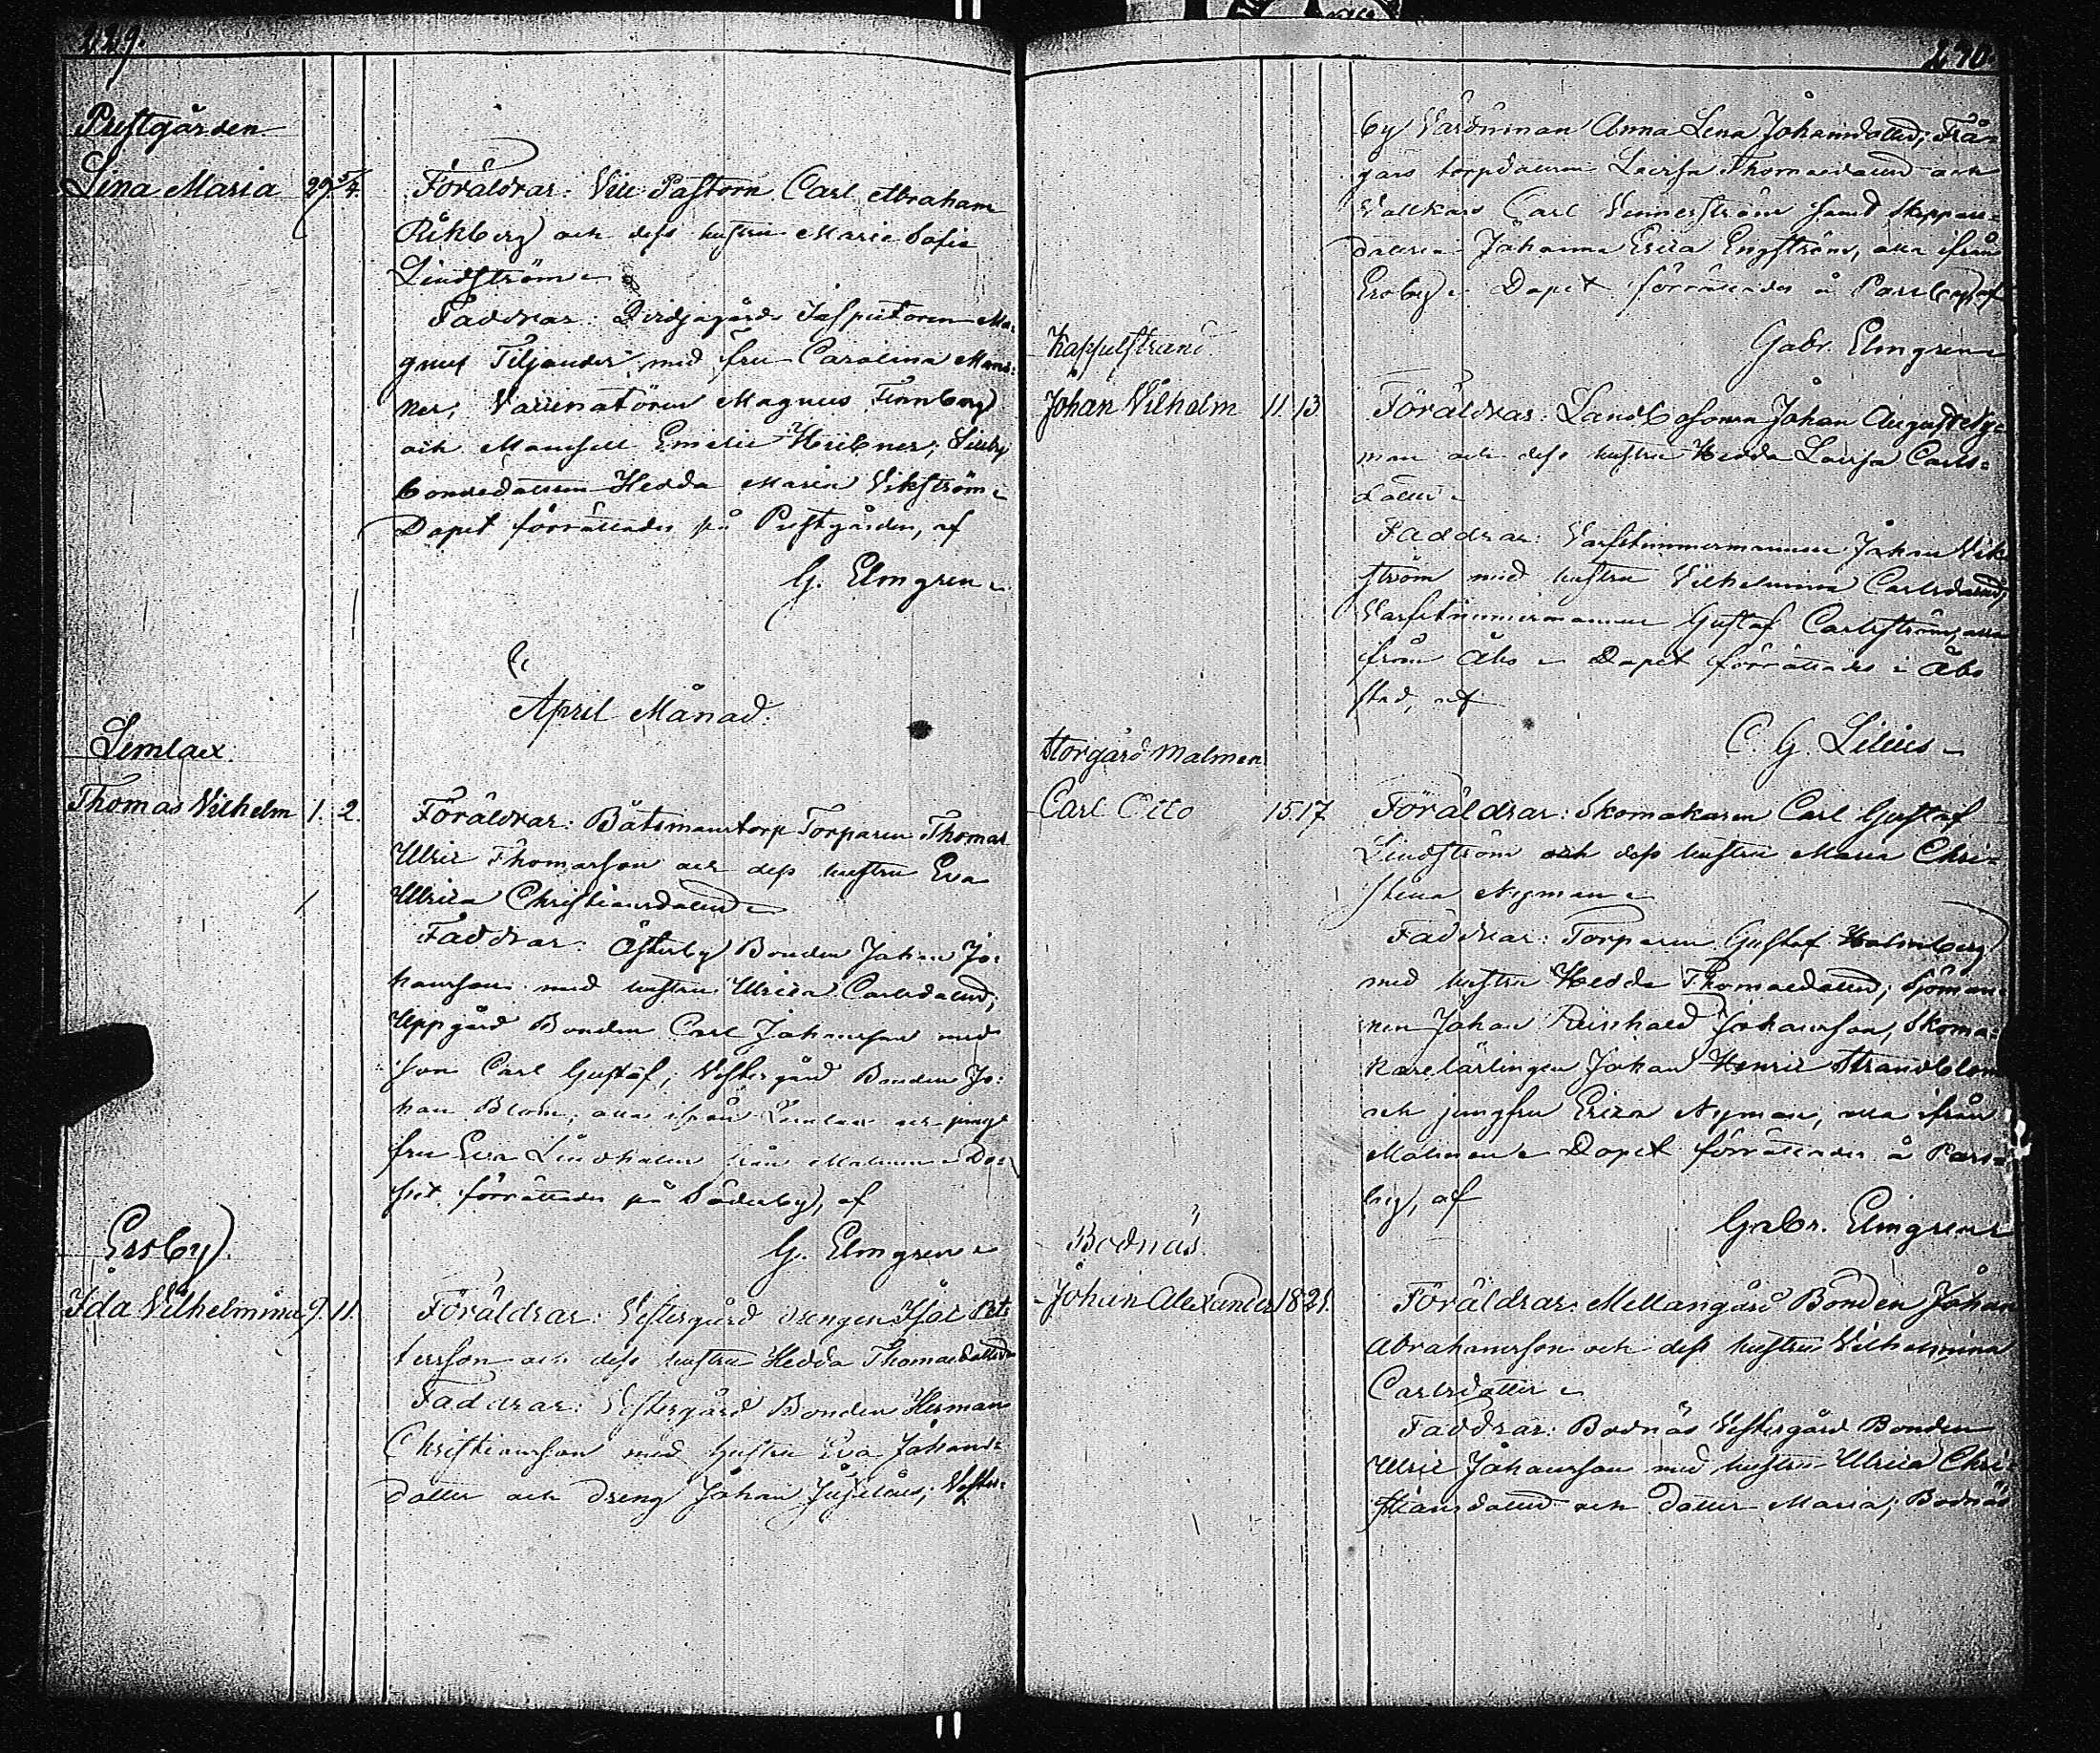 229.
Prestgården
Lina Maria 29. 5/4. Föräldrar: Vice Pastorn Carl Abraham
Råhberg och dess hustru Maria Sofia
Lindström
Faddrar: Inspectoren Ma-
gnus Tiljander med fru Carolina Mans-
ner, Vaccinatören Magnus Finnberg
och Mamsell Emelie Hübner;
bondedottren Hedda Maria Vikström
Dopet förrättades på Prestgården, af
G. Elmgren
April Månad.
Lemlax.
Thomas Vilhelm 1. 2. Föräldrar: Båtsmanstorp Torparen Thomas
Ulric Thomasson och dess hustru Eva
Ulrica Christiansdotter
Faddrar: Österby Bonden Johan Jo-
hansson med hustru Ulrica Carlsdotter;
Uppgård Bonden Carl Johansson med
son Carl Gustaf; Vestergård Bonden Jo-
han Blom, alla ifrån Lemlax och jung-
fru Eva Lindholm från Malmen Do-
pet förrättades på Söderby, af
G. Elmgren
Ersby
Ida Vilhelmina 9. 11. Föräldrar: Vestergård drengen Isac Pet-
tersson och dess hustru Hedda Thomasdotter
Faddrar: Vestergård Bonden Herman
Christiansson med hustru Eva Johans-
dotter och dreng Johan; Vester-
270.
by Vårdinnan Anna Lena Johansdotter; Frän-
torpdottren Lovisa Thomasdotter och
Carl Vennerström samt Skeppare-
dottren Johanna Erica Engström, alla ifrån
Ersby Dopet förrättades å Parsby, af
Gabr. Elmgren
Kappelstrand
Johan Vilhelm 11. 13. Föräldrar: Landbosonen Johan August Ny-
man och dess hustru Hedda Lovisa Carls-
dotter
Faddrar: Varfstimmermannen Johan Vik-
ström med hustru Vilhelmina Carlsdotter,
Varfstimmermannen Gustaf Carlström, alla
från Åbo Dopet förrättades i Åbo
stad, af
C. G. Lilius
Storgård Malmen
Carl Otto 15. 17. Föräldrar: Skomakaren Carl Gustaf
Lindström och dess hustru Maria Chri-
stina Nyman
Faddrar: Torparen Gustaf Holmberg
med hustru Hedda Thomasdotter; Sjöman-
nen Johan Reinhold Johansson, Skoma-
karelärlingen Johan Henric Strandblom
och jungfru Erica Nyman, alla ifrån
Malmen Dopet förrättades å Pars-
by, af
Gabr. Elmgren
Bodnäs.
Johan Alexander 18. 21. Föräldrar: Mellangård Bonden Johan
Abrahamsson och dess hustru Vilhelmina
Carlsdotter
Faddrar: Bodnäs Vestergård Bonden
Ulric Johansson med hustru Ulrica Chri-
stiansdotter och dotter Maria; Bodnäs